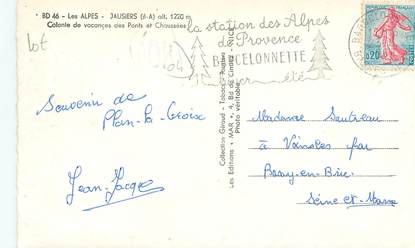 BD 46 - Les ALPES - JAUSIERS (B-A) alt. 1220 m
Colonie de vacances des Ponts et Chaussées
lot
04
la station des Alpes
de Provence
BARCELONNETTE
hiver été
0,20
Souvenir de
Plan-la-Croix
Jean-Jacques
Collection Giraud - Tabacs
Les Editions "MAR", 4, Bd de Cimiez - NICE
Photo véritable
Madame Sautreau
à Voinsles par
Rozay-en-Brie
Seine et Marne